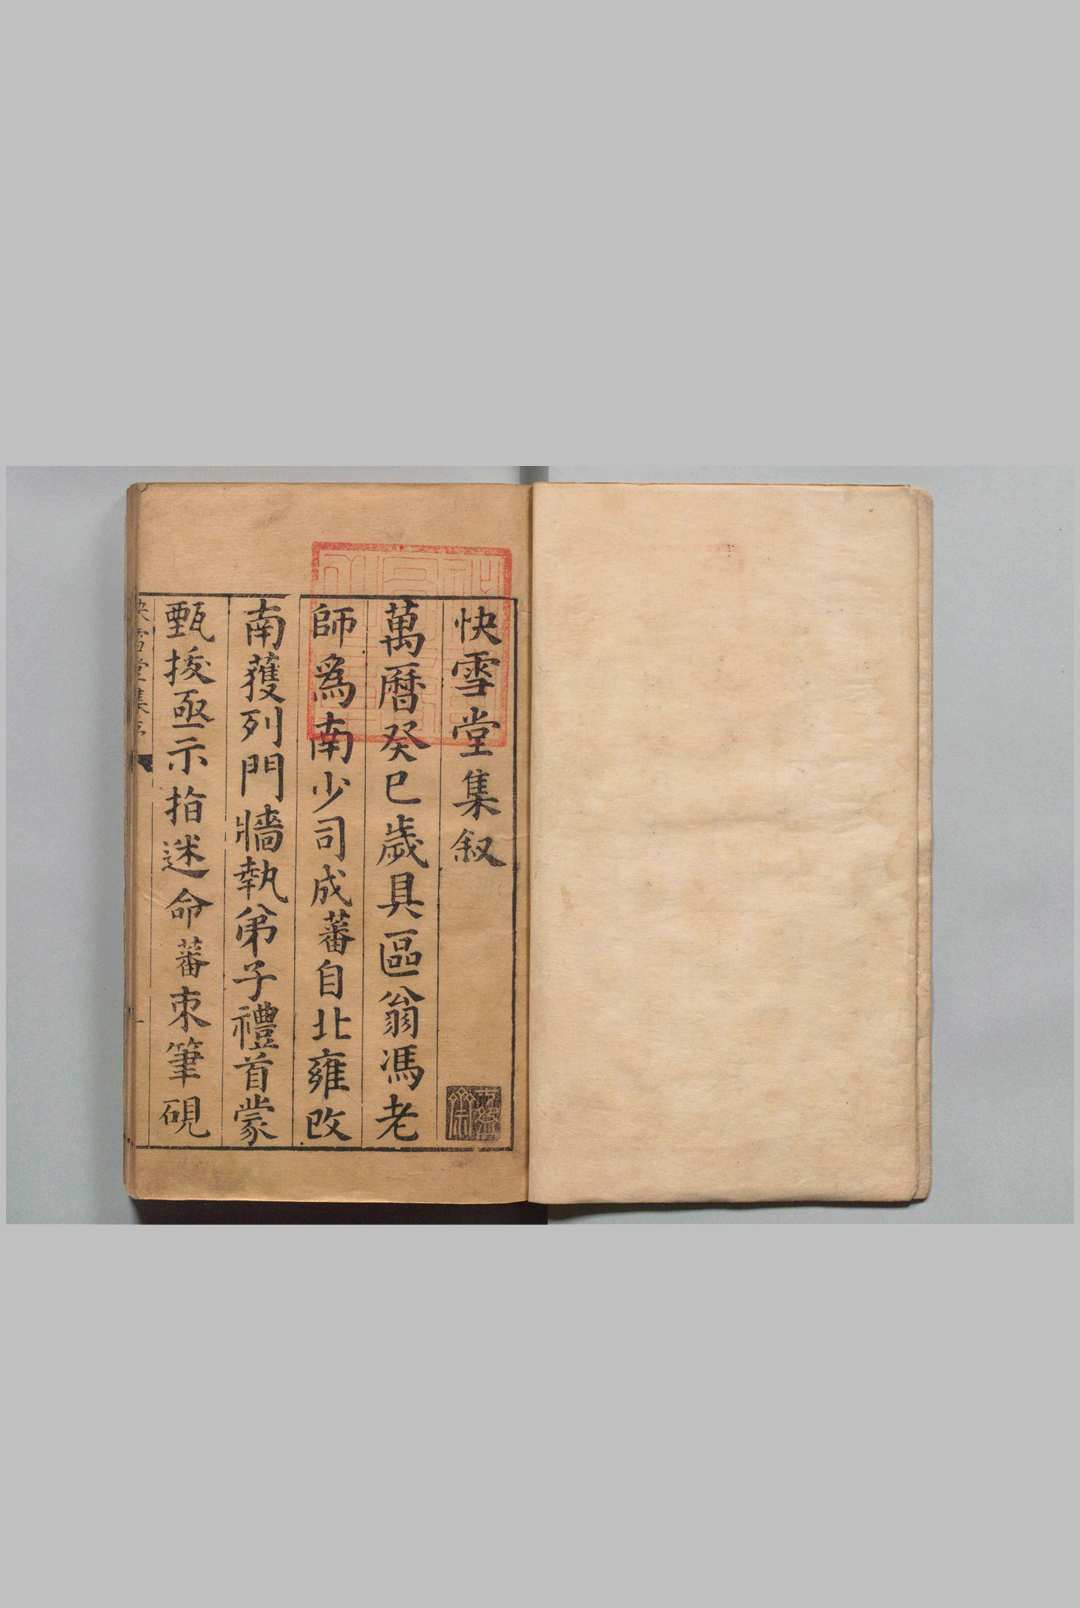 快雪堂集叙
萬曆癸巳歲具區翁馮老
師爲南少司成蕃自北雍改
南獲列門牆執弟子禮首蒙
甄拔亟示指迷命蕃朿筆硯
快雪堂集序